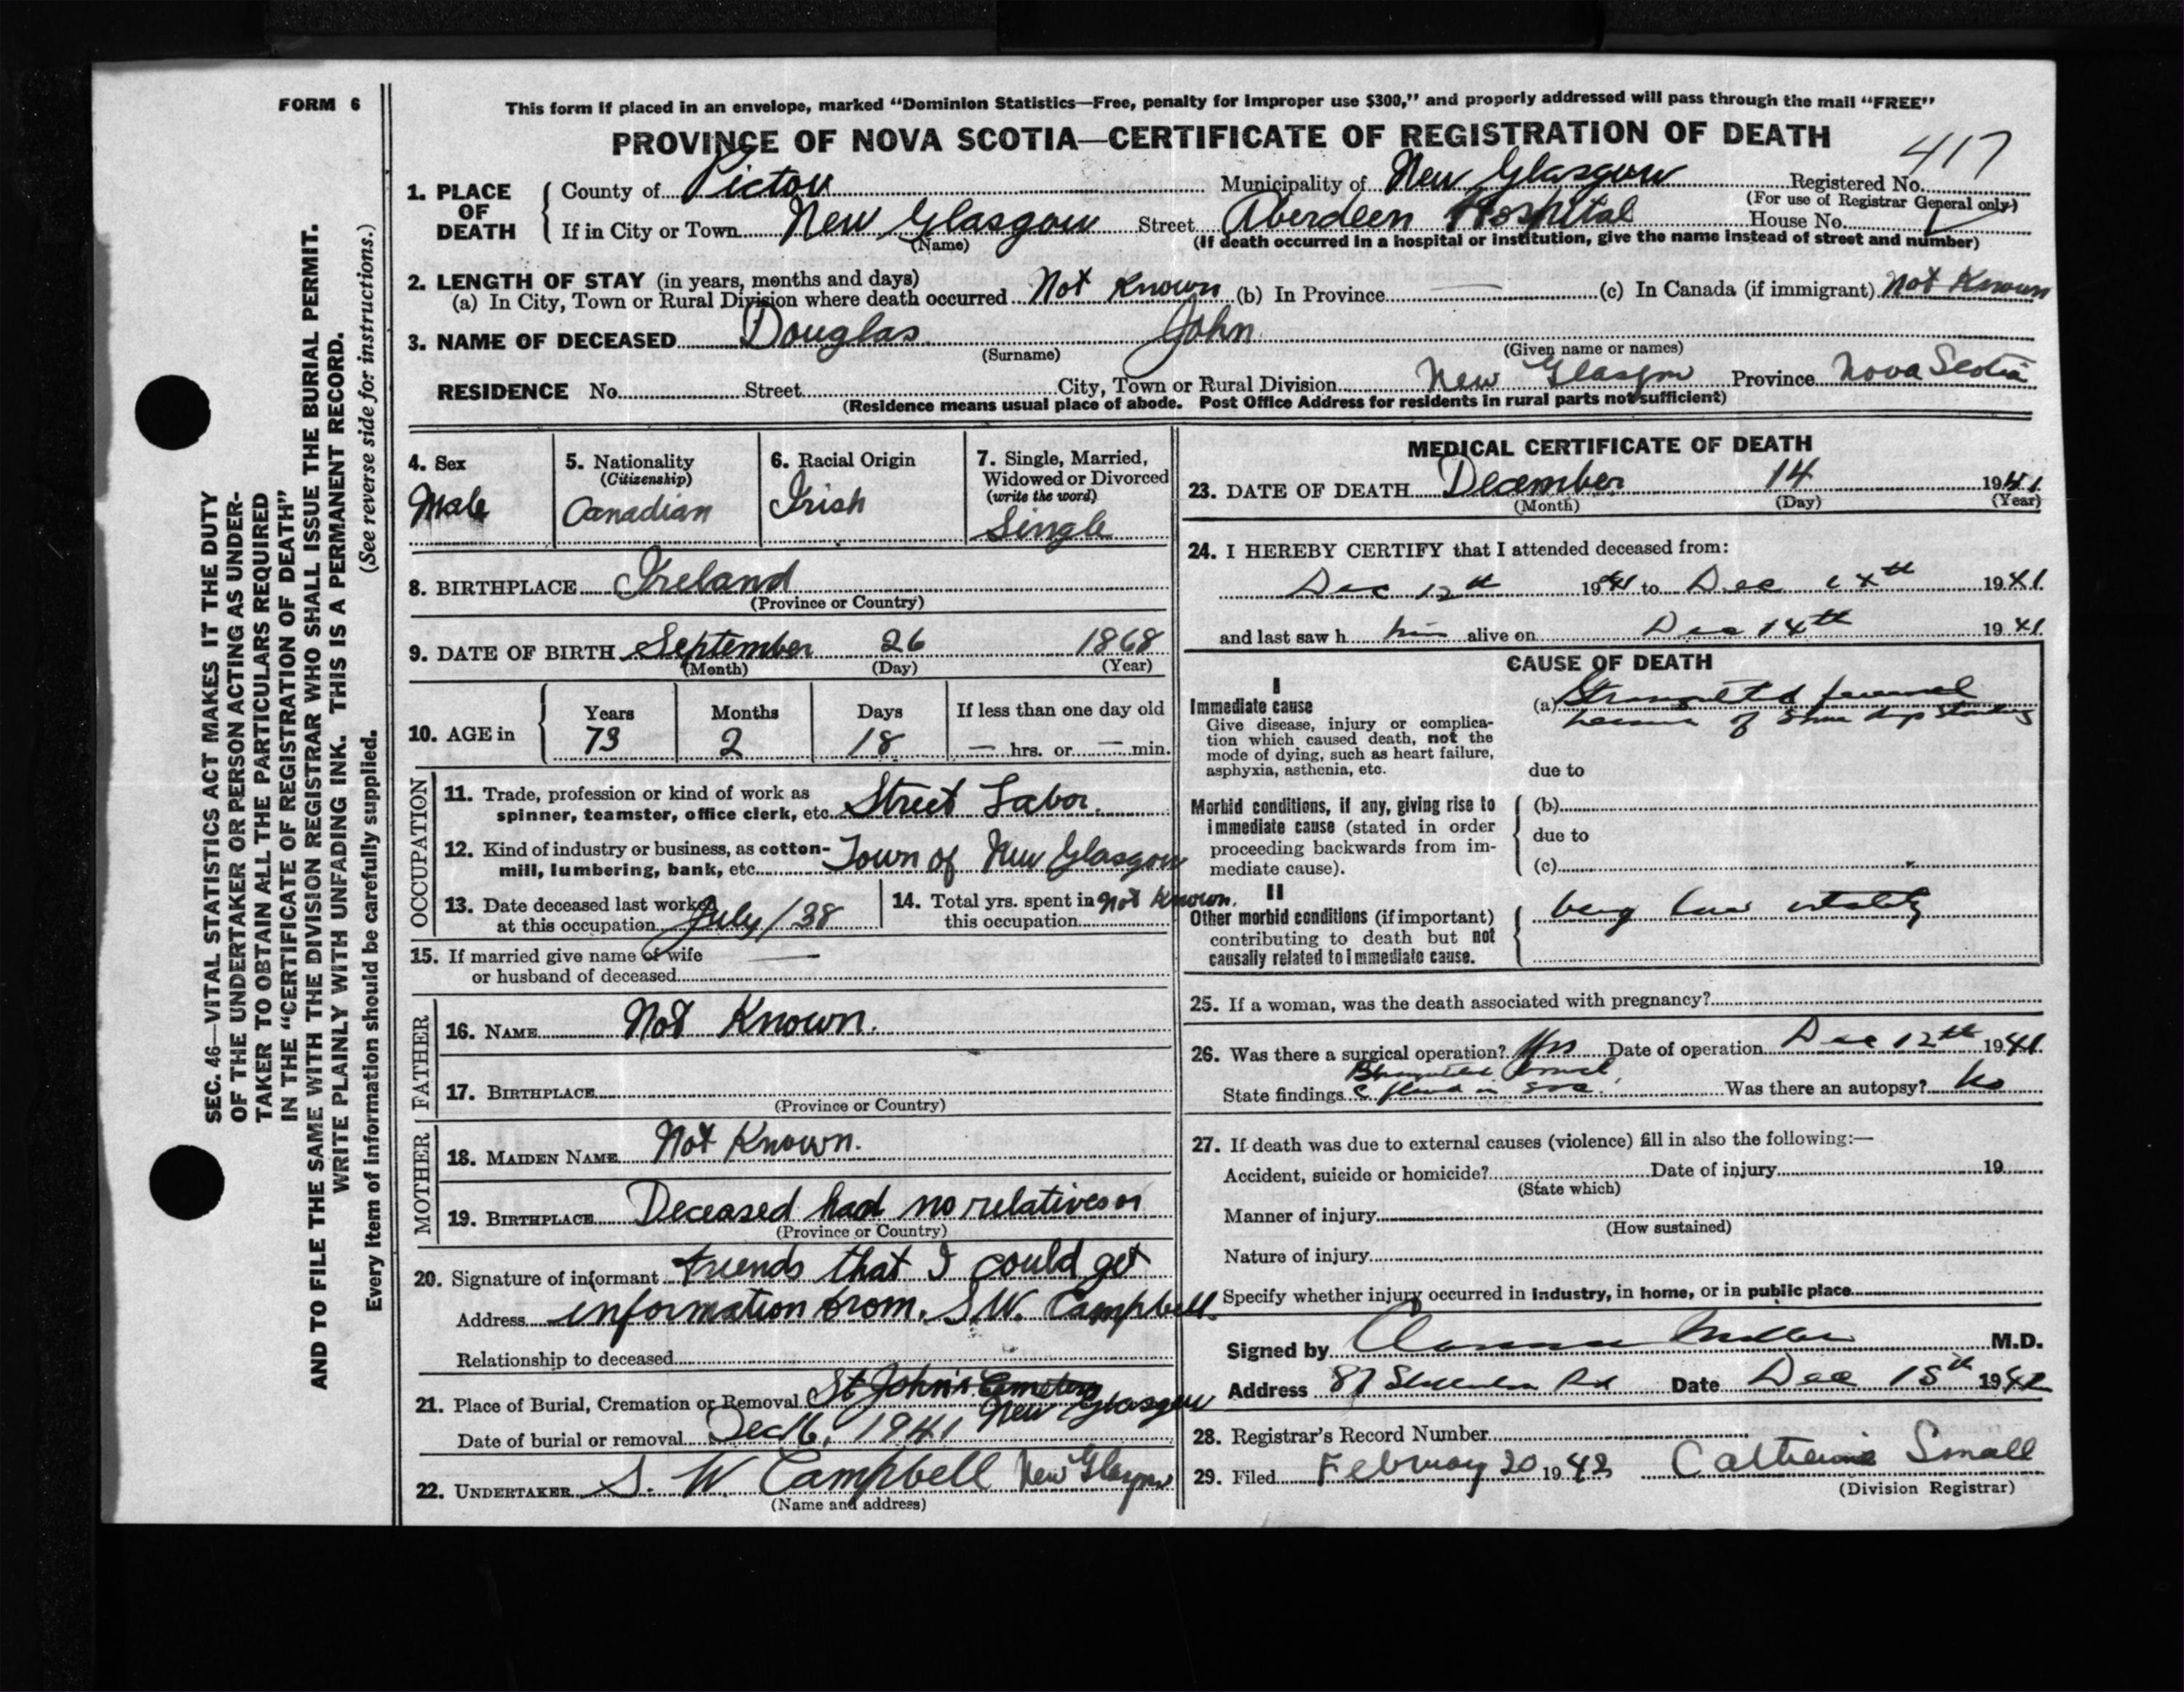 FORM 6
This form if placed in an envelope, marked "Dominion Statistics—Free, penalty for improper use $300," and properly addressed will pass through the mail "FREE"
PROVINCE OF NOVA SCOTIA—CERTIFICATE OF REGISTRATION OF DEATH
417
1. PLACE OF DEATH
County of Pictou Municipality of New Glasgow Registered No.
(For use of Registrar General only)
If in City or Town New Glasgow Street Aberdeen Hospital House No.
(Name) (If death occurred in a hospital or institution, give the name instead of street and number)
2. LENGTH OF STAY (in years, months and days)
(a) In City, Town or Rural Division where death occurred Not Known (b) In Province — (c) In Canada (if immigrant) Not Known
3. NAME OF DECEASED Douglas John
(Surname) (Given name or names)
RESIDENCE No. Street City, Town or Rural Division New Glasgow Province Nova Scotia
(Residence means usual place of abode. Post Office Address for residents in rural parts not sufficient)
4. Sex
Male
5. Nationality
(Citizenship)
Canadian
6. Racial Origin
Irish
7. Single, Married,
Widowed or Divorced
(write the word)
Single
8. BIRTHPLACE Ireland
(Province or Country)
9. DATE OF BIRTH September 26 1868
(Month) (Day) (Year)
10. AGE in
Years Months Days If less than one day old
73 2 18 — hrs. or — min.
OCCUPATION
11. Trade, profession or kind of work as
spinner, teamster, office clerk, etc. Street Labor.
12. Kind of industry or business, as cotton-
mill, lumbering, bank, etc. Town of New Glasgow
13. Date deceased last worked
at this occupation July/38
14. Total yrs. spent in Not Known.
this occupation
15. If married give name of wife —
or husband of deceased
FATHER
16. NAME Not Known.
17. BIRTHPLACE
(Province or Country)
MOTHER
18. MAIDEN NAME Not Known.
19. BIRTHPLACE Deceased had no relatives or
(Province or Country)
20. Signature of informant friends that I could get
Address information from. S.W. Campbell.
Relationship to deceased
21. Place of Burial, Cremation or Removal St John's Cemetery
New Glasgow
Date of burial or removal Dec 16, 1941
22. UNDERTAKER S. W. Campbell New Glasgow
(Name and address)
MEDICAL CERTIFICATE OF DEATH
23. DATE OF DEATH December 14 1941
(Month) (Day) (Year)
24. I HEREBY CERTIFY that I attended deceased from:
Dec 12th 1941 to Dec 14th 1941
and last saw h him alive on Dec 14th 1941
CAUSE OF DEATH
I
Immediate cause
Give disease, injury or complica-
tion which caused death, not the
mode of dying, such as heart failure,
asphyxia, asthenia, etc.
(a) Strangulated femoral
hernia of days standing
due to
Morbid conditions, if any, giving rise to
immediate cause (stated in order
proceeding backwards from im-
mediate cause).
(b)
due to
(c)
II
Other morbid conditions (if important)
contributing to death but not
causally related to immediate cause.
low vitality
25. If a woman, was the death associated with pregnancy?
26. Was there a surgical operation? Yes Date of operation Dec 12th 1941
Strangulated bowel
State findings fluid in sac. Was there an autopsy? No
27. If death was due to external causes (violence) fill in also the following:—
Accident, suicide or homicide? Date of injury 19
(State which)
Manner of injury
(How sustained)
Nature of injury
Specify whether injury occurred in industry, in home, or in public place
Signed by Clarence Miller M.D.
Address 87 Rd Date Dec 15th 194
28. Registrar's Record Number
29. Filed February 20 1942 Catherine Small
(Division Registrar)
SEC. 46—VITAL STATISTICS ACT MAKES IT THE DUTY
OF THE UNDERTAKER OR PERSON ACTING AS UNDER-
TAKER TO OBTAIN ALL THE PARTICULARS REQUIRED
IN THE "CERTIFICATE OF REGISTRATION OF DEATH"
AND TO FILE THE SAME WITH THE DIVISION REGISTRAR WHO SHALL ISSUE THE BURIAL PERMIT.
WRITE PLAINLY WITH UNFADING INK. THIS IS A PERMANENT RECORD.
Every item of information should be carefully supplied. (See reverse side for instructions.)